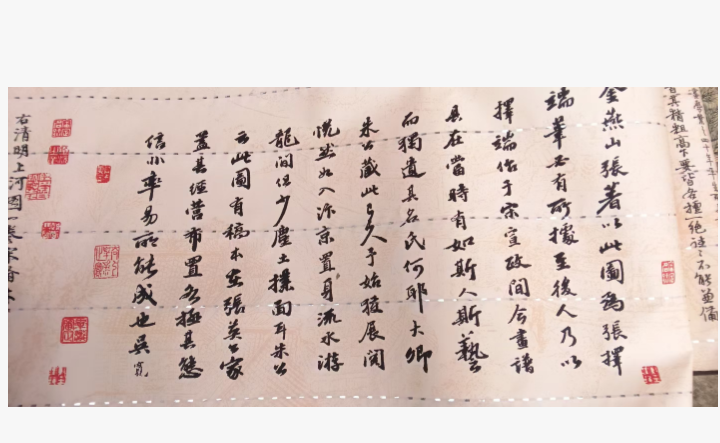 金燕山張著以此圖為張擇
端筆必有所據至後人乃以
擇端作于宋宣政間今畫譜
具在當時有如斯人斯藝
而獨遺其名氏何耶大卿
朱公藏此已久予始獲展閱
恍然如入汴京置身流水游
龍間但少塵土撲面耳朱公
云此圖有稿本在張英公家
蓋其經營布置各極其態
信非率易所能成也吳寬
右清明上河圖一卷宋